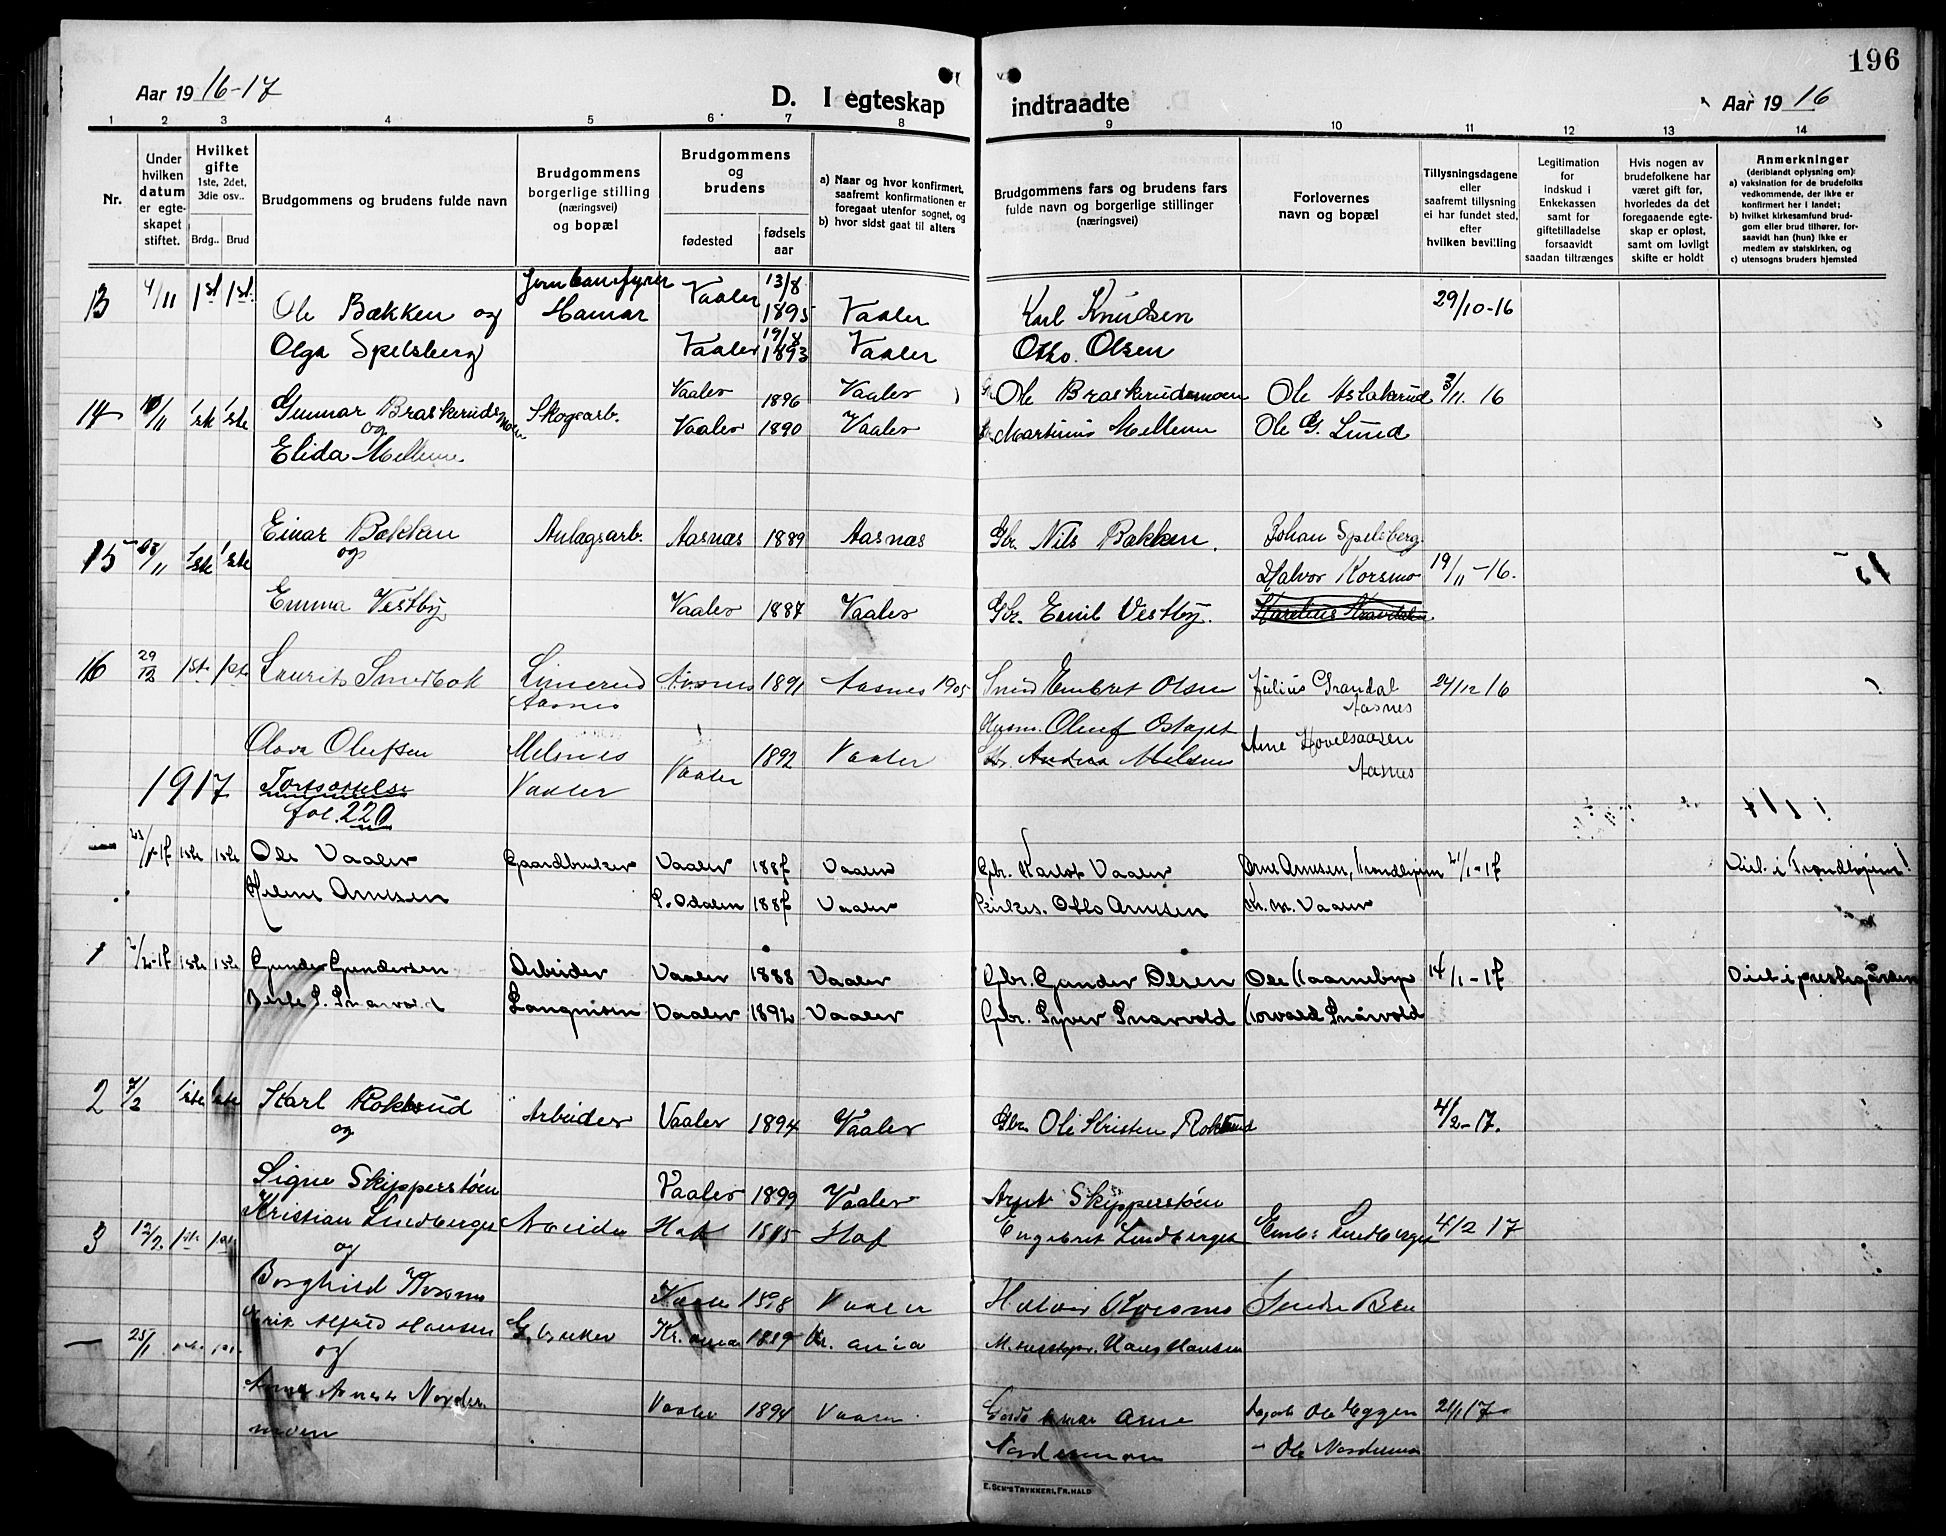 196
Aar 19 16-17
D. I egteskap
indtraadte
Aar 19 16
1 2 3 4 5 6 7 8 9 10 11 12 13 14
Nr.
Under hvilken datum er egteskapet stiftet.
Hvilket gifte 1ste, 2det, 3die osv..
Brdg.. Brud
Brudgommens og brudens fulde navn
Brudgommens borgerlige stilling (næringsvei) og bopæl
Brudgommens og brudens
fødested
fødselsaar
a) Naar og hvor konfirmert, saafremt konfirmationen er foregaat utenfor sognet, og
b) hvor sidst gaat til alters
Brudgommens fars og brudens fars fulde navn og borgerlige stillinger (næringsvei)
Forlovernes navn og bopæl
Tillysningsdagene eller saafremt tillysning ei har fundet sted, efter hvilken bevilling
Legitimation for indskud i Enkekassen samt for giftetilladelse forsaavidt saadan tiltrænges
Hvis nogen av brudefolkene har været gift før, hvorledes da det foregaaende egteskap er opløst, samt om lovligt skifte er holdt
Anmerkninger
(deriblandt oplysning om):
a) vaksination for de brudefolks vedkommende, der ikke er konfirmert her i landet;
b) hvilket kirkesamfund brudgom eller brud tilhører, forsaavidt han (hun) ikke er medlem av statskirken, og
c) utensogns bruders hjemsted
13 4/11 1st 1st. Ole Bækken og Jernbanefyrer Hamar Vaaler 13/8 1895 Vaaler Karl Knudsen 29/10-16
Olga Spelsberg Vaaler 19/8 1893 Vaaler Otto Olsen
14 10/11 1ste 1ste Gunnar Braskerudsmoen Skogsarb. Vaaler 1896 Vaaler Ole Braskerudsmoen Ole Aslakrud 3/11. 16
og Vaaler 1890 Vaaler Martinus Mellem Ole G. Lund
Elida Mellem
15 /11 1ste 1ste Einar Bækken Anlægsarb. Aasnæs 1889 Aasnæs Gbr. Nils Bækken. Johan Spelsberg
og Halvor Korsmo 19/11-16.
Emma Vestby Vaaler 1887 Vaaler Gbr. Emil Vestby.
16 29/12 1ste 1ste Laurits Smedbøk Limerud Aasnes 1891 Aasnes 1905 Smed Embret Olsen Julius Grandal 24/12 16
Aasnes Aasnes
Oluf Ostaget
Olava Olufsen Melsnes Vaaler 1892 Vaaler Andrea Melsnes Arne Hovelsaasen
Aasnes
1917 Fortsættelse Vaaler
fol. 220
— 1ste 1ste Ole Vaaler Gaardbruker Vaaler 1887 Vaaler Gbr. Karlot Vaaler Arne Arntsen, Trondhjem 21/1-17 Viet i Trondhjem!
Helene Arntsen S. Odalen 1887 Vaaler Otto Arntsen Vaaler
1 2/2-17 1ste 1ste Gunder Gundersen Arbeider Vaaler 1888 Vaaler Gbr. Gunder Olsen Ole Kaarneby 14/1-17 Viet i prestegården
S. Snarvold Langmoen Vaaler 1892 Vaaler Gbr. Syver Snarvold Torvald Snarvold
2 7/2 1ste 1ste Karl Roklsud Arbeider Vaaler 1894 Vaaler Gbr. Ole Kristen 4/2-17.
og
Signe Skipperstøen Vaaler 1899 Vaaler Arnt Skipperstøen
3 12/2. 1ste 1ste Kristian Lindberget Arbeider Hof 1885 Hof Engebret Lindberget Lindberget 4/2 17
og
Borghild Korsmo Vaaler 1898 Vaaler Halvor Korsmo
— 25/1 1ste 1ste Erik Alfred Hansen G.bruker Kr.ania 1889 Kr.ania Hans Hansen
og
Anna Agnes Nordermoen Vaaler 1894 Vaaler Arne Nordermoen Ole Eggen 21/1 17
Ole Nordermo
E. SEM'S TRYKKERI, FR. HALD